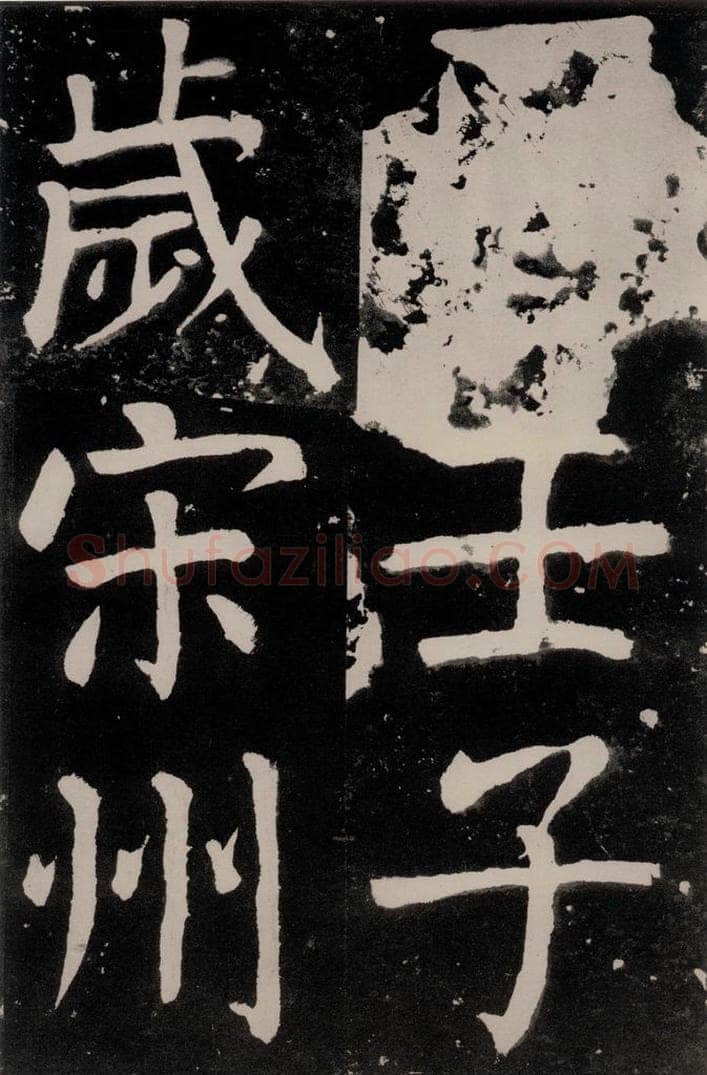 壬子
歳宋州
Shufaziliao.COM